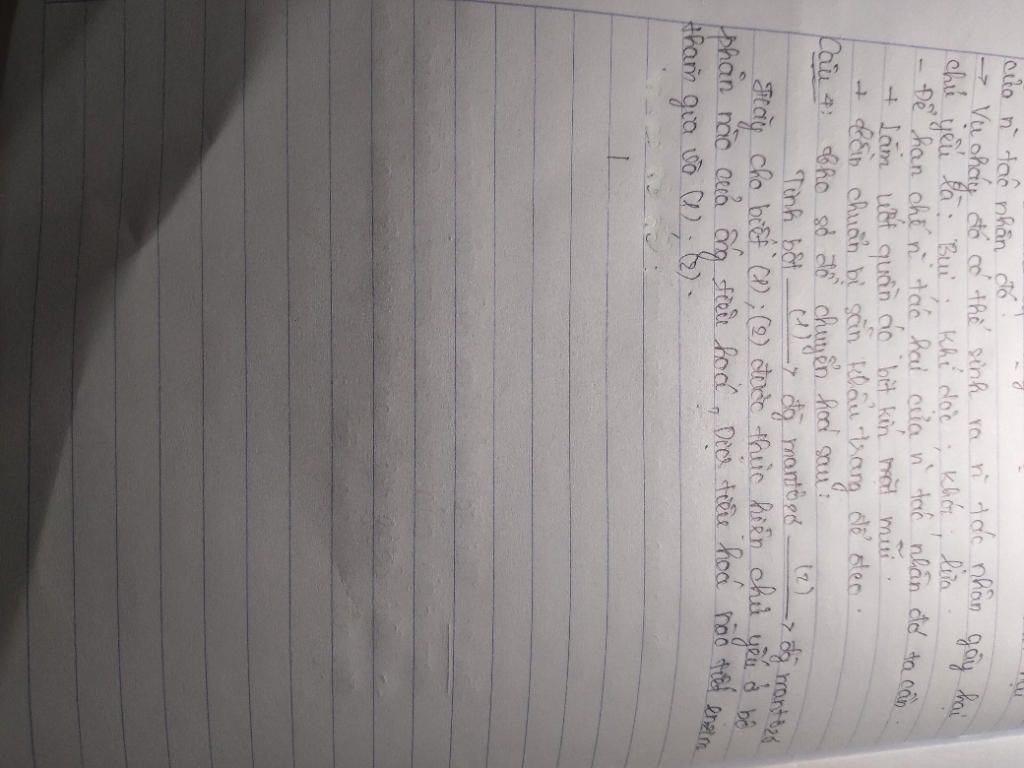 của n̄ tác nhân đó?
→ Vụ cháy đó có thể sinh ra n̄ tác nhân gây hại
chủ yếu là: Bụi, khí độc, khói, lửa.
- Để hạn chế n̄ tác hại của n̄ tác nhân đó ta cần.
+ Làm ướt quần áo bịt kín mặt mũi.
+ Cần chuẩn bị sẵn khẩu trang để đeo.
Câu 4: Cho sơ đồ chuyển hoá sau:
Tinh bột —(1)→ đg mantôzơ —(2)→ đg mantozơ
Hãy cho biết (1), (2) được thực hiện chủ yếu ở bộ
phận nào của ống tiêu hoá, Dịch tiêu hoá nào tiết enzim
tham gia vô (1), (2).